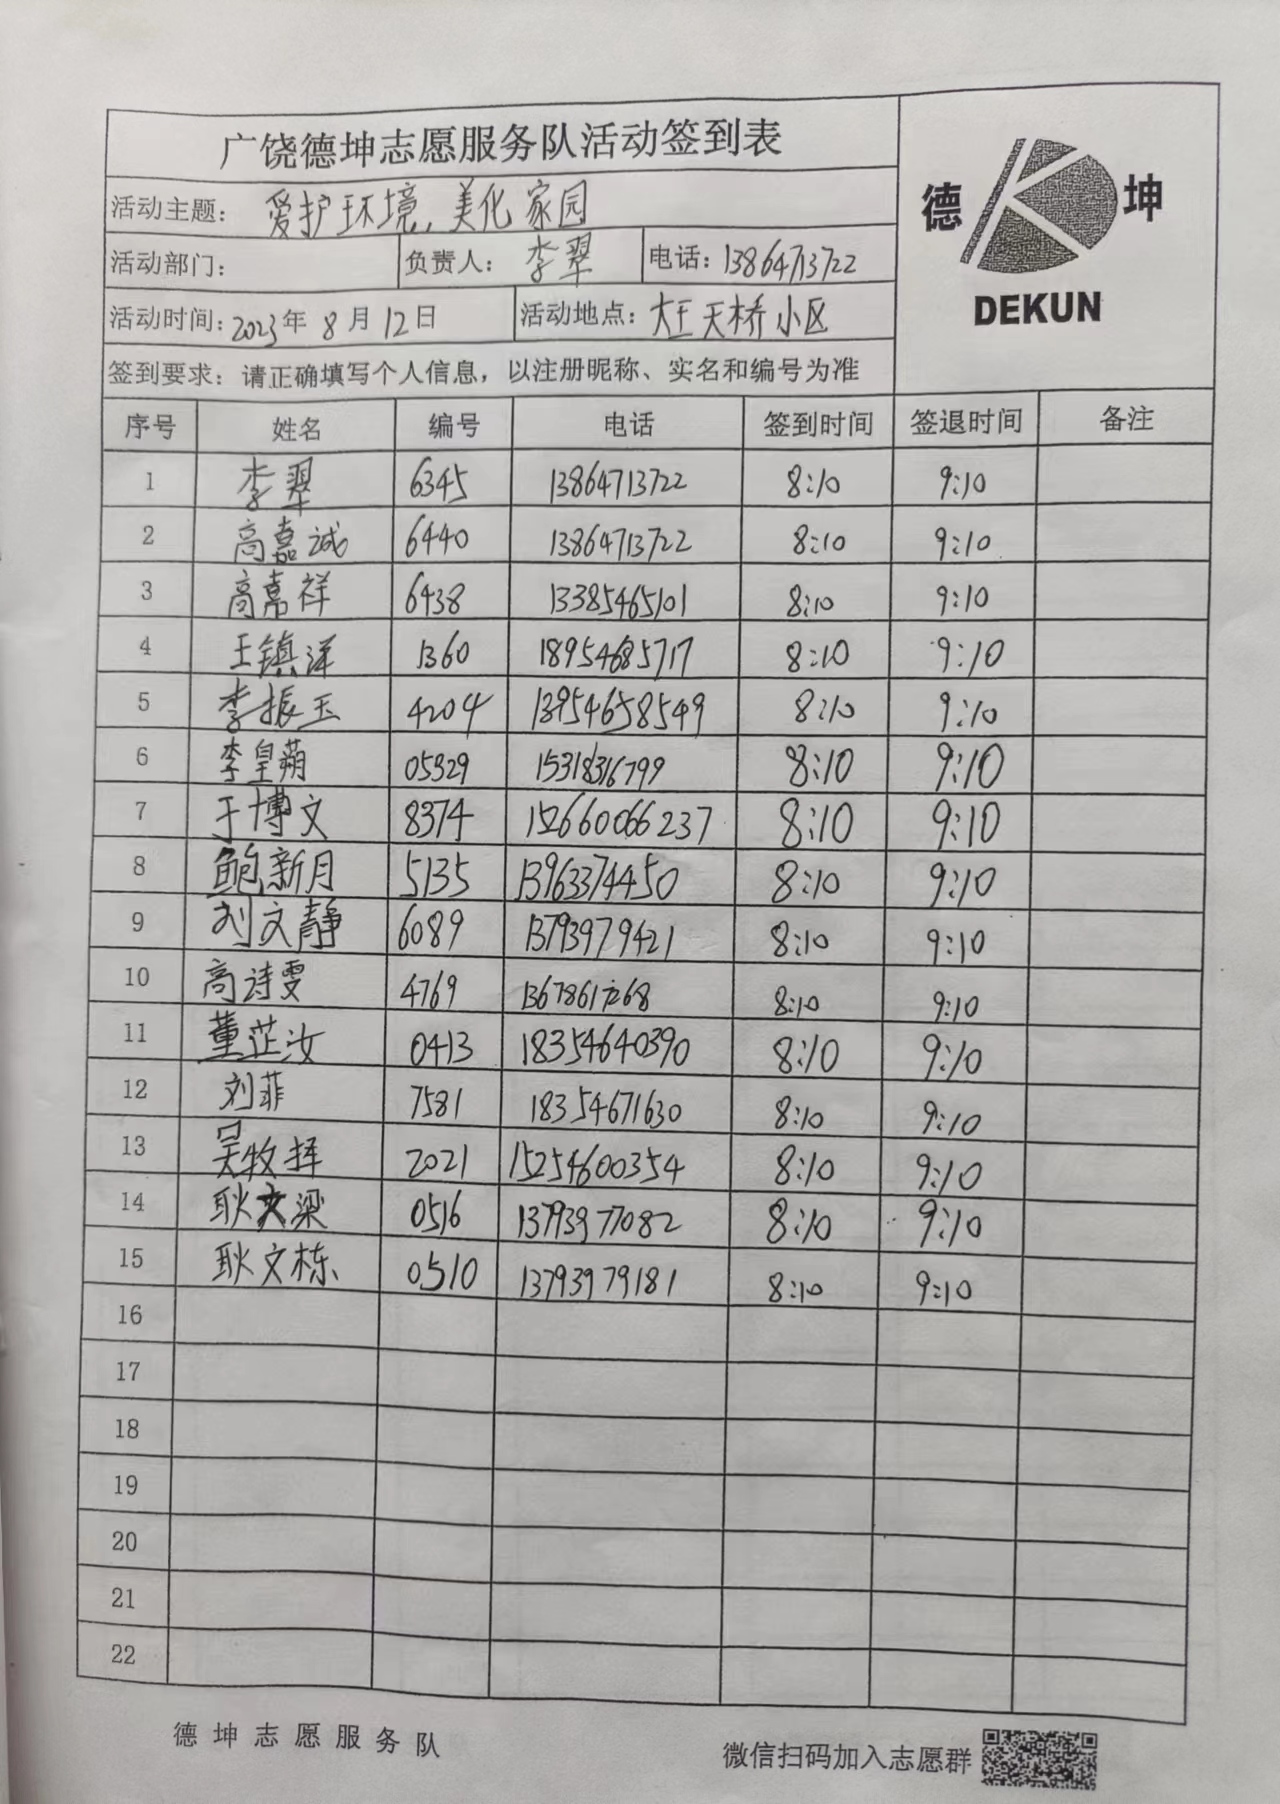 广饶德坤志愿服务队活动签到表
德 坤
DEKUN
活动主题： 爱护环境，美化家园
活动部门： 负责人： 李翠 电话：13864713722
活动时间：2023年 8 月 12 日 活动地点：大王天桥小区
签到要求：请正确填写个人信息，以注册昵称、实名和编号为准
序号 姓名 编号 电话 签到时间 签退时间 备注
1 李翠 6345 13864713722 8:10 9:10
2 高嘉诚 6440 13864713722 8:10 9:10
3 高嘉祥 6438 13385465101 8:10 9:10
4 王镇洋 1360 18954685717 8:10 9:10
5 李振玉 4204 13954658549 8:10 9:10
6 李皇蒴 05329 15318316799 8:10 9:10
7 于博文 8374 152660066237 8:10 9:10
8 鲍新月 5135 13963374450 8:10 9:10
9 刘文静 6089 13793979421 8:10 9:10
10 高诗雯 4769 8:10 9:10
11 董芷汝 0413 18354640390 8:10 9:10
12 刘菲 7581 18354671630 8:10 9:10
13 吴牧择 2021 15254600354 8:10 9:10
14 耿文梁 0516 13793977082 8:10 9:10
15 耿文栋 0510 13793979181 8:10 9:10
16
17
18
19
20
21
22
德坤志愿服务队
微信扫码加入志愿群